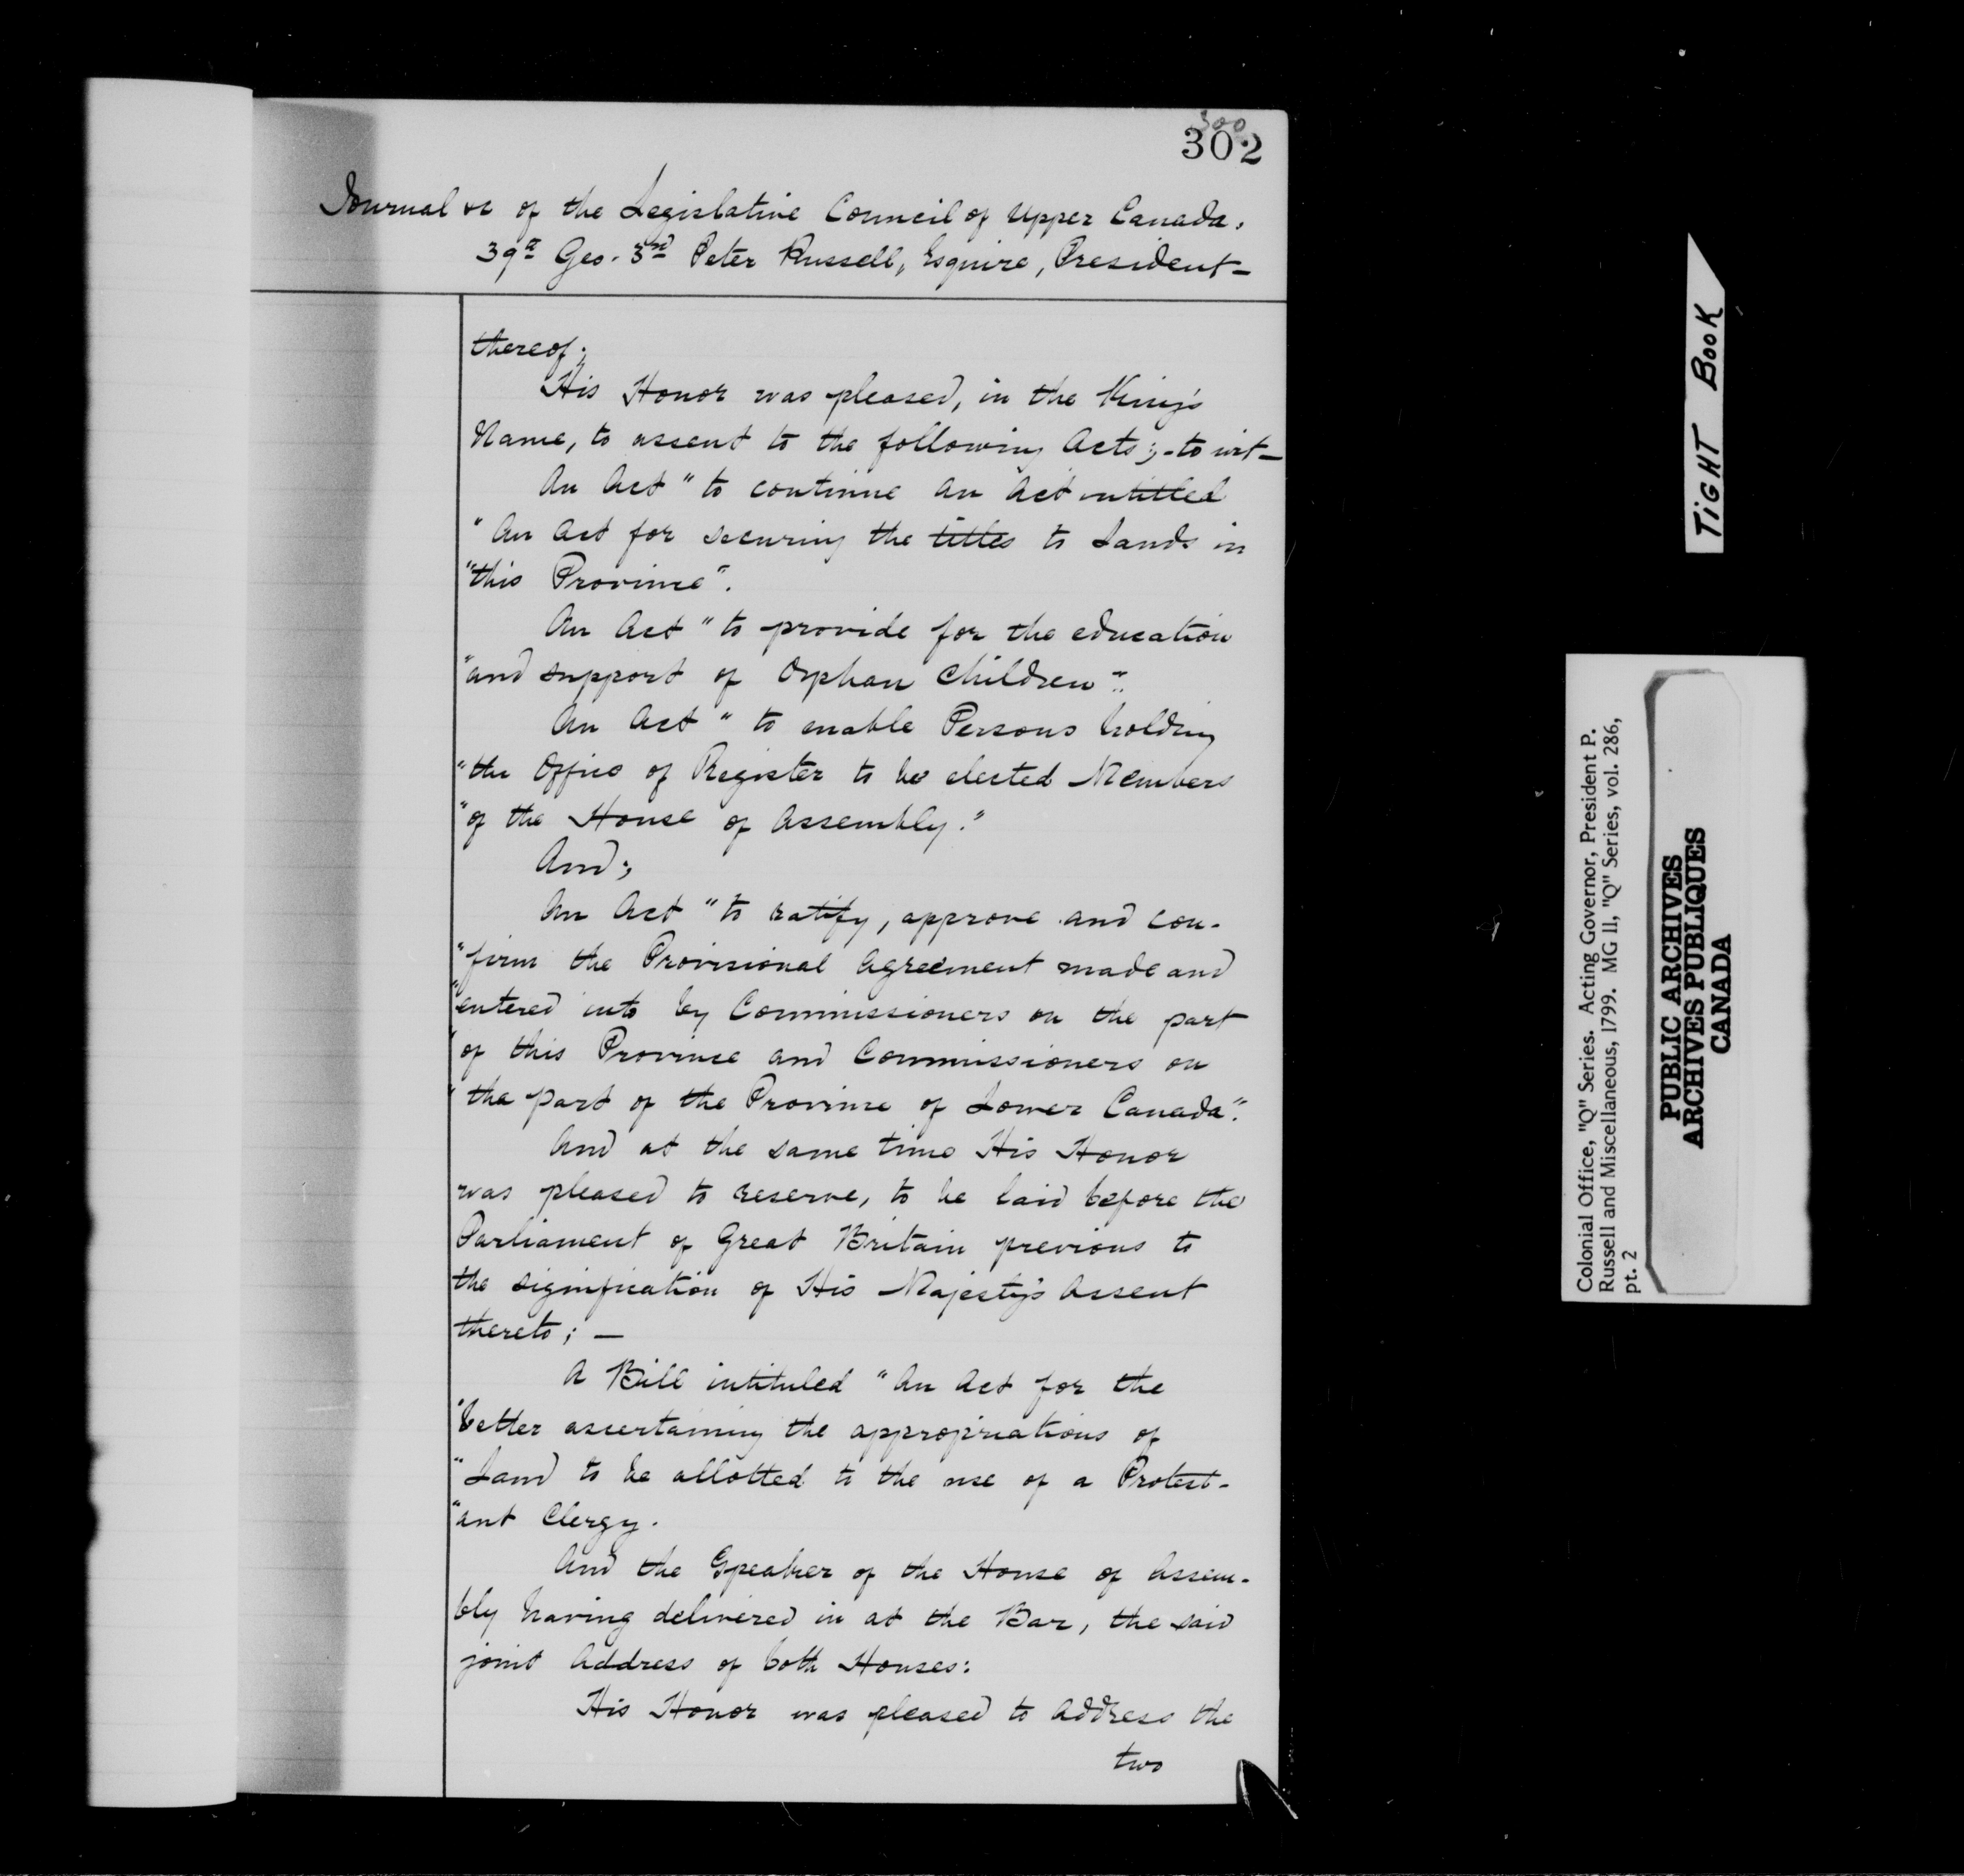 300
302
Journal &c of the Legislative Council of Upper Canada.
39th Geo. 3rd Peter Russell, Esquire, President—
thereof;
His Honor was pleased, in the King's
Name, to assent to the following Acts;-to wit—
An Act "to continue an Act intitled
"An Act for securing the titles to Lands in
"this Province".
An Act "to provide for the education
"and support of Orphan Children".
An Act "to enable Persons holding
"the Office of Register to be elected Members
"of the House of Assembly."
And;
An Act "to ratify, approve and con-
"firm the Provisional Agreement made and
"entered into by Commissioners on the part
"of this Province and Commissioners on
"the part of the Province of Lower Canada".
And at the same time His Honor
was pleased to reserve, to be laid before the
Parliament of Great Britain previous to
the signification of His Majesty's Assent
thereto; —
A Bill intituled "An Act for the
"better ascertaining the appropriations of
"Land to be allotted to the use of a Protest-
"ant Clergy.
And the Speaker of the House of Assem-
bly having delivered in at the Bar, the said
joint Address of both Houses:
His Honor was pleased to address the
two
TIGHT BOOK
Colonial Office, "Q" Series. Acting Governor, President P.
Russell and Miscellaneous, 1799. MG 11, "Q" Series, vol. 286,
pt. 2
PUBLIC ARCHIVES
ARCHIVES PUBLIQUES
CANADA